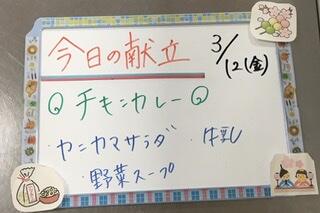 今日の献立
3/12(金)
◎チキンカレー◎
・ヤシカマサラダ ・牛乳
・野菜スープ